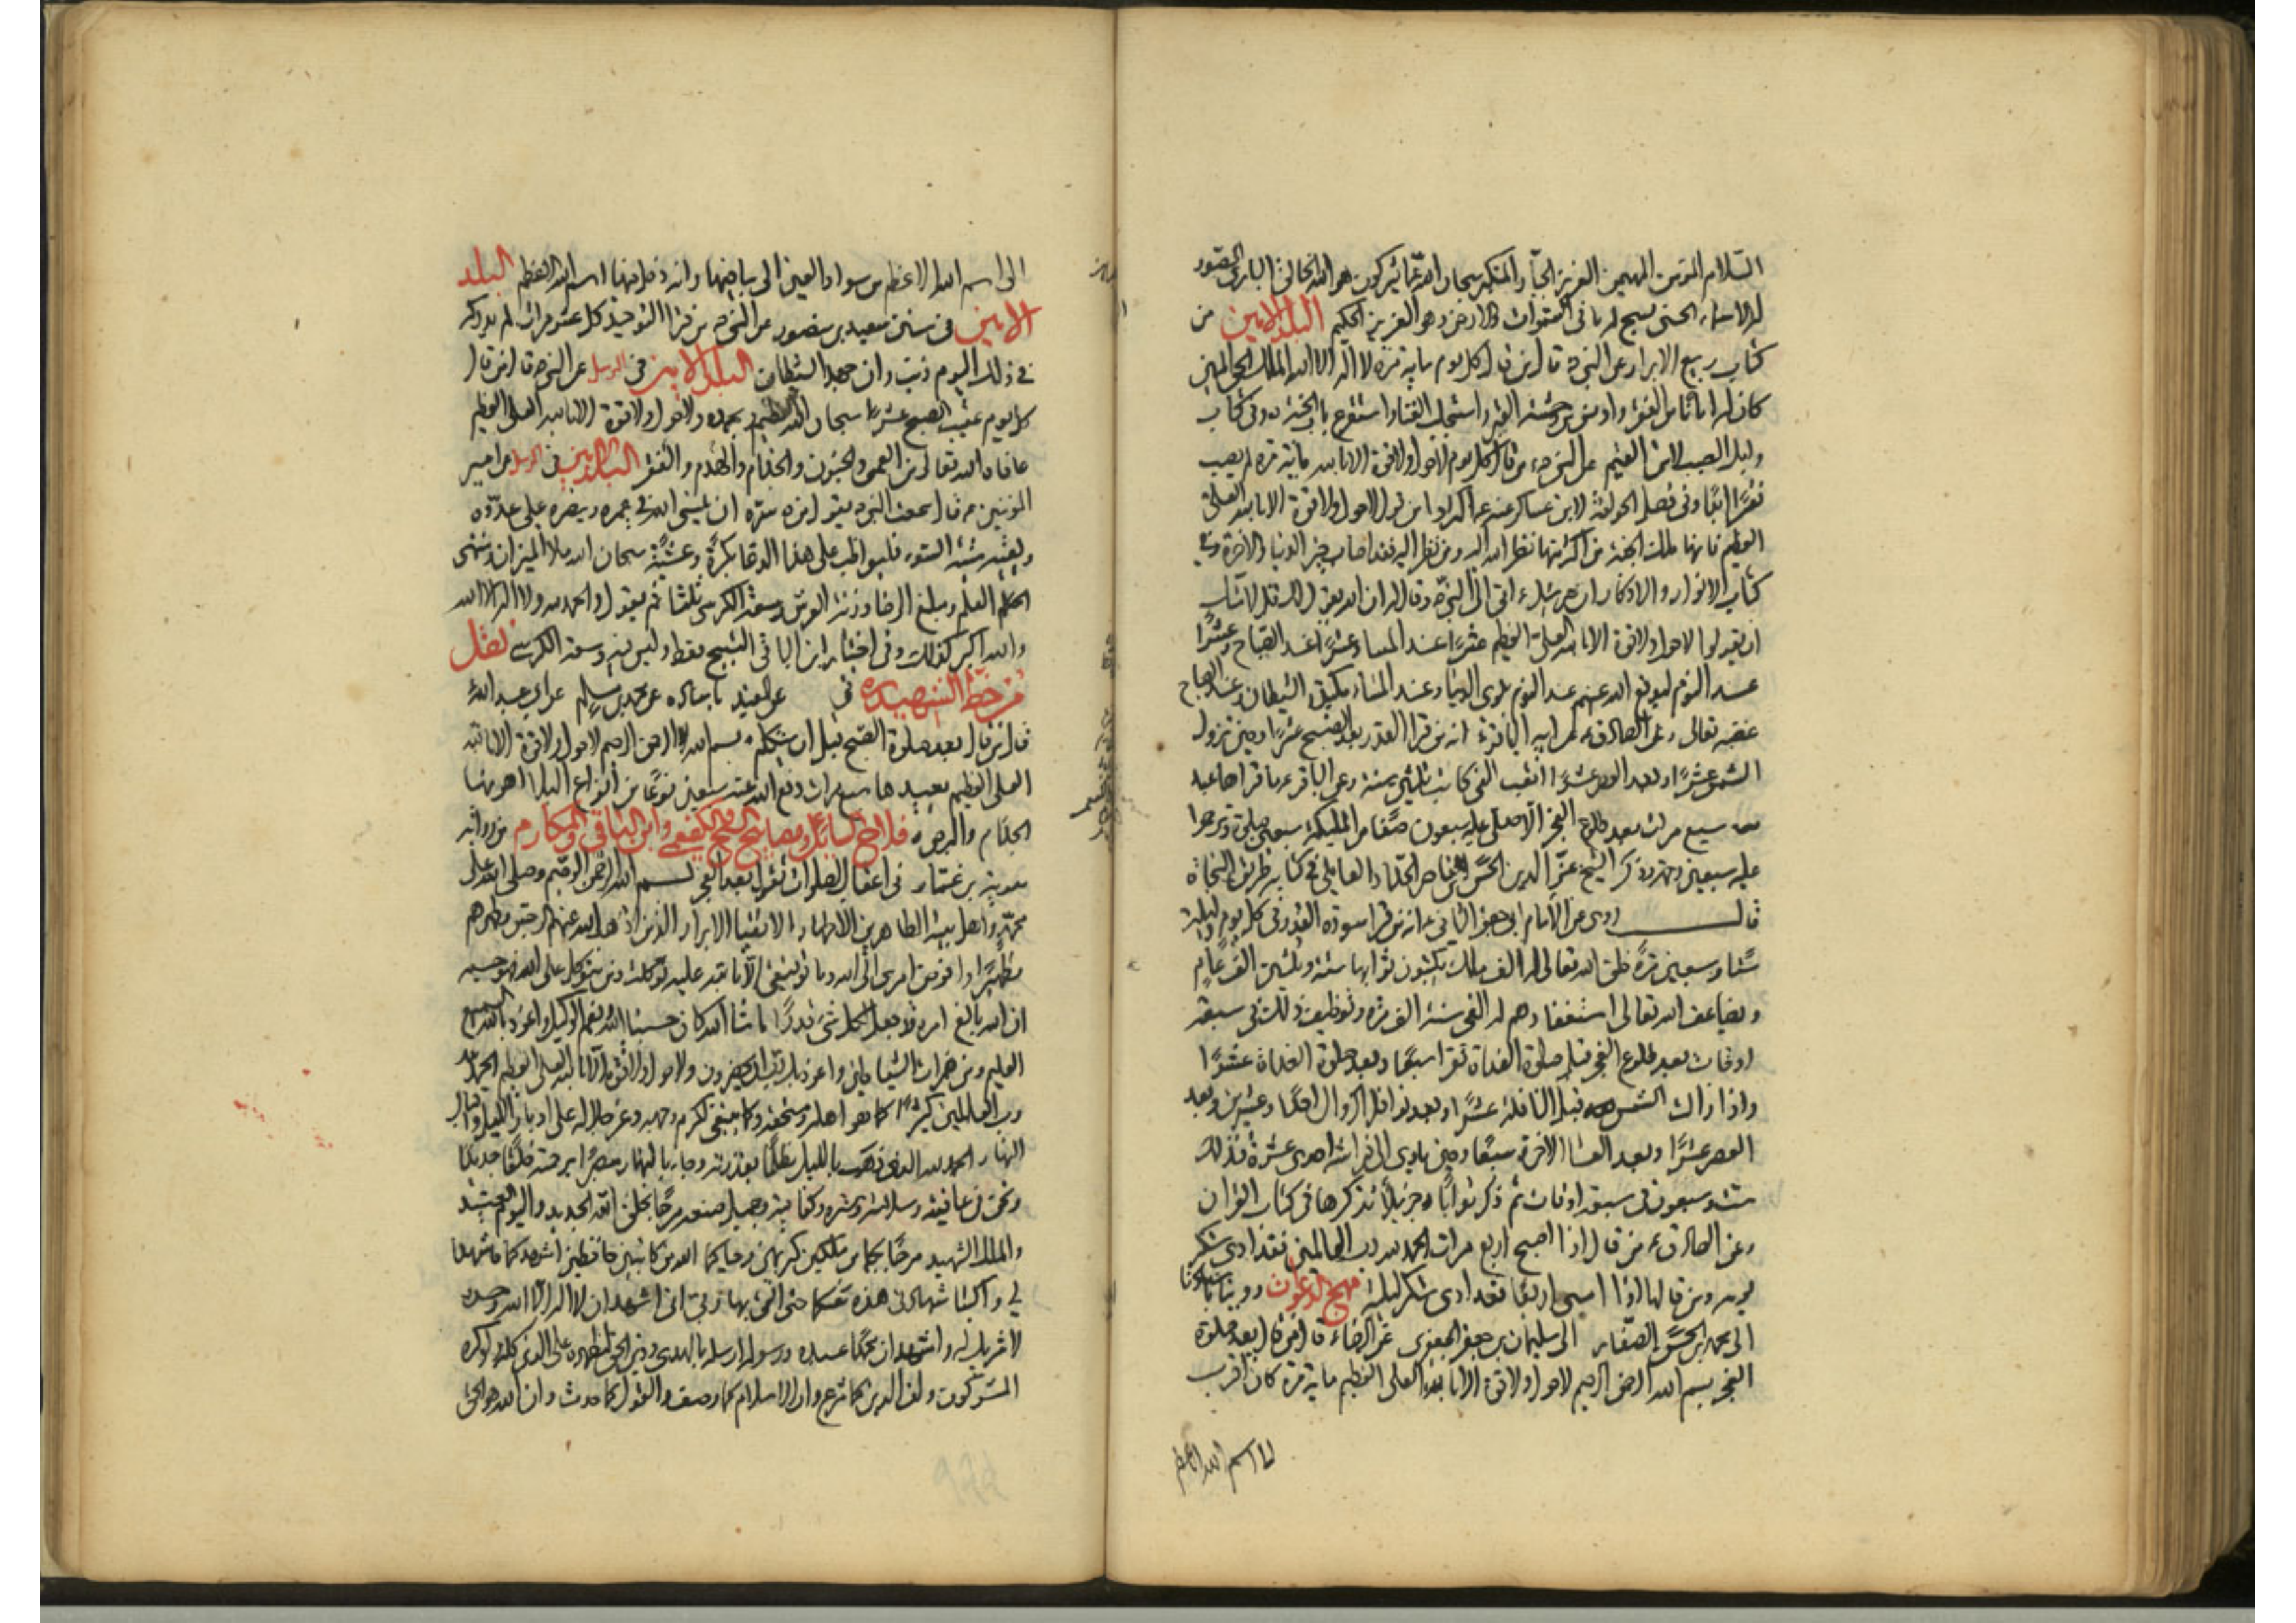 السّلام المؤمن المهيمن العزيز الجبّار المتكبر سبحان الله عمّا يشركون هو الله الخالق البارئ المصوّر
له الاسماء الحسنى يسبح له ما فى السّموات والارض وهو العزيز الحكيم البلد الامين من
كتاب ربيع الابرار عن النبى ص قال من قال كل يوم ماية مرّة لا اله الا الله الملك الحق المبين
كان له امانا من الفقر واومن من وحشة القبر واستجلب الغنا واستقرع باب الجنة وفى كتاب
عن النبى ص من قال كل يوم لا حول ولا قوة الا بالله ماية مرة لم يصبه
فقر ابدًا وفى فضل الحولقة لابن عساكر عنه ص اكثروا من قول لا حول ولا قوة الا بالله العلى
العظيم فانها من اكثر منها نظر الله اليه ومن نظر اليه فقد اصاب خير الدنيا والاخرة وفى
كتاب الانوار والاذكار ان جبرئيل ع اتى الى النبى ص وقال له ان الله يقول لك قل لامتك
ان يقولوا لا حول ولا قوة الا بالله العلى العظيم عشرًا عند المساء وعشرًا عند الصباح وعشرًا
عند النوم ليدفع الله عنهم عند النوم بلوى الدنيا وعند المساء مكايد الشيطان وعند الصباح
غضبه تعالى وعن الصادق ع عن ابيه الباقر ع انه من قرا القدر بعد الصبح عشرا وحين تزول
الشمس عشرًا وبعد العصر عشرًا اتعب الفى كاتب ثلثين سنة وعن الباقر ع ما قراها عبد
سبع مرات بعد طلوع الفجر الا صلى عليه سبعون صفّا من المليكة سبعين صلوة وترحموا
عليه سبعين رحمة وذكر الشيخ عزّ الدين الحسن بن ناصر الحدّاد العاملى فى كتابه طريق النجاة
قال روى عن الامام ابى جعفر الثانى ع انه من قرا سورة القدر فى كل يوم وليلة
ستّا وسبعين مرّة خلق الله تعالى له الف ملك يكتبون ثوابها ستة وثلثين الف عام
ويضاعف الله تعالى استغفارهم له الفى سنة الف مرّة وتوظيف ذلك فى سبعة
اوقات بعد طلوع الفجر قبل صلوة الغداة تقرا سبعًا وبعد صلوة الغداة عشرًا
واذا زالت الشمس قبل النافلة عشرًا وبعد نوافل الزوال احدًا وعشرين وبعد
العصر عشرًا وبعد العشا الاخرة سبعًا وحين ياوى الى فراشه احدى عشرة فذلك
ستّ وسبعون فى سبعة اوقات ثم ذكر ثوابًا جزيلًا نذكرها فى كتاب القرآن
وعن الصادق ع من قال اذا اصبح اربع مرات الحمد لله رب العالمين فقد ادى شكر
يومه ومن قالها اذا امسى اربعًا فقد ادى شكر ليلته مهج الدعوات روينا باسنادنا
الى محمد بن الحسن الصفّار الى سليمان بن جعفر الجعفرى عن الرضا ع قال من قال بعد صلوة
الفجر بسم الله الرحمن الرحيم لا حول ولا قوة الا بالله العلى العظيم ماية مرة كان اقرب
الى اسم الله الاعظم
الى اسم الله الاعظم من سواد العين الى بياضها وانه دخل فيها اسم الله الاعظم البلد
الامين فى سنن سعيد بن منصور عن النبى ص من قرا التوحيد كل عشر مرات لم يدركه
فى ذلك اليوم ذنب وان جهد الشيطان البلد الامين فى عن النبى ص قال من قال
كل يوم عقيب الصبح عشرًا سبحان الله العظيم وبحمده ولا حول ولا قوة الا بالله العلى العظيم
عافاه الله تعالى من العمى والجنون والجذام والهدم والفقر البلد الامين فى عن امير
المؤمنين ع قال سمعت النبى ص يقول من سرّه ان ينسئ الله فى عمره وينصره على عدوّه
ويقيه ميتة السّوء فليواظب على هذا الدعا بكرةً وعشيّةً سبحان الله ملا الميزان ومنتهى
العلم ومبلغ الرضا وزنة العرش وسعة الكرسى ثلثًا ثم يقول والحمد لله ولا اله الا الله
والله اكبر كذلك وفى اختيار ابن الباقى التسبيح فقط وليس فيه وسعة الكرسى نقل
من خطّ الشهيد ره فى عن المفيد باسناده عن محمد بن مسلم عن ابى عبد الله ع
قال من قال بعد صلوة الصبح قبل ان يتكلم بسم الله الرحمن الرحيم لا حول ولا قوة الا بالله
العلى العظيم يعيدها سبع مرات دفع الله عنه سبعين نوعًا من انواع البلاء اهونها
الجذام والبرص فلاح السائل ومصابيح الكفعمى وابن الباقى والمكارم من رواية
معوية بن عمّار فى اعقاب الصلوات تقول بعد الفجر بسم الله الرحمن الرحيم وصلى الله على
محمّد واهل بيته الطاهرين الاخيار الاتقيا الابرار الذين اذهب الله عنهم الرجس وطهرهم
تطهيرًا وافوض امرى الى الله وما توفيقى الا بالله عليه توكلت ومن يتوكل على الله فهو حسبه
ان الله بالغ امره قد جعل الله لكل شئ قدرًا ما شا الله كان حسبنا الله ونعم الوكيل واعوذ بالله السميع
العليم من همزات الشياطين واعوذ بك رب ان يحضرون ولا حول ولا قوة الا بالله العلى العظيم الحمد لله
رب العالمين كثيرًا كما هو اهله ومستحقه وكما ينبغى لكرم وجهه وعز جلاله على ادبار الليل واقبال
النهار الحمد لله الذى ذهب بالليل مظلمًا بقدرته وجاء بالنهار مبصرًا برحمته خلقًا جديدًا
ونحن فى عافيته وسلامته وستره وكفايته وجميل صنعه مرحبًا بخلق الله الجديد واليوم العتيد
والملك الشهيد مرحبًا بكما من ملكين كريمين وحياكما الله من كاتبين حافظين اشهدكما فاشهدا
لى واكتبا شهادتى هذه معكما حتى القى بها ربى انى اشهد ان لا اله الا الله وحده
لا شريك له واشهد ان محمدًا عبده ورسوله ارسله بالهدى ودين الحق ليظهره على الدين كله ولو كره
المشركون وان الدين كما شرع وان الاسلام كما وصف والقول كما حدث وان الله هو الحق